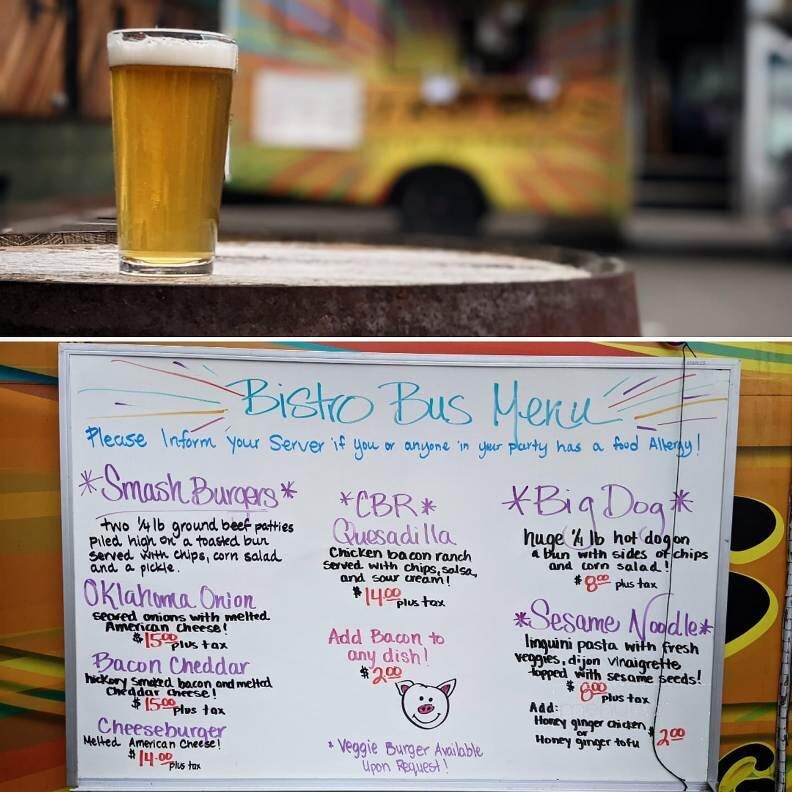 Bistro Bus Menu
Please Inform your Server if you or anyone in your party has a food Allergy!
*Smash Burgers*
two 1/4 lb ground beef patties
piled high on a toasted bun
served with chips, corn salad
and a pickle.
Oklahoma Onion
seared onions with melted
American cheese!
$15.00 plus tax
Bacon Cheddar
hickory smoked bacon and melted
Cheddar cheese!
$15.00 plus tax
Cheeseburger
Melted American Cheese!
$14.00 plus tax
*CBR*
Quesadilla
Chicken bacon ranch
served with chips, salsa,
and sour cream!
$14.00 plus tax
Add Bacon to
any dish!
$2.00
* Veggie Burger Available
Upon Request!
*Big Dog*
huge 1/4 lb hot dog on
a bun with sides of chips
and corn salad!
$8.00 plus tax
*Sesame Noodle*
linguini pasta with fresh
veggies, dijon vinaigrette
topped with sesame seeds!
$8.00 plus tax
Add:
Honey ginger chicken
or
Honey ginger tofu $2.00